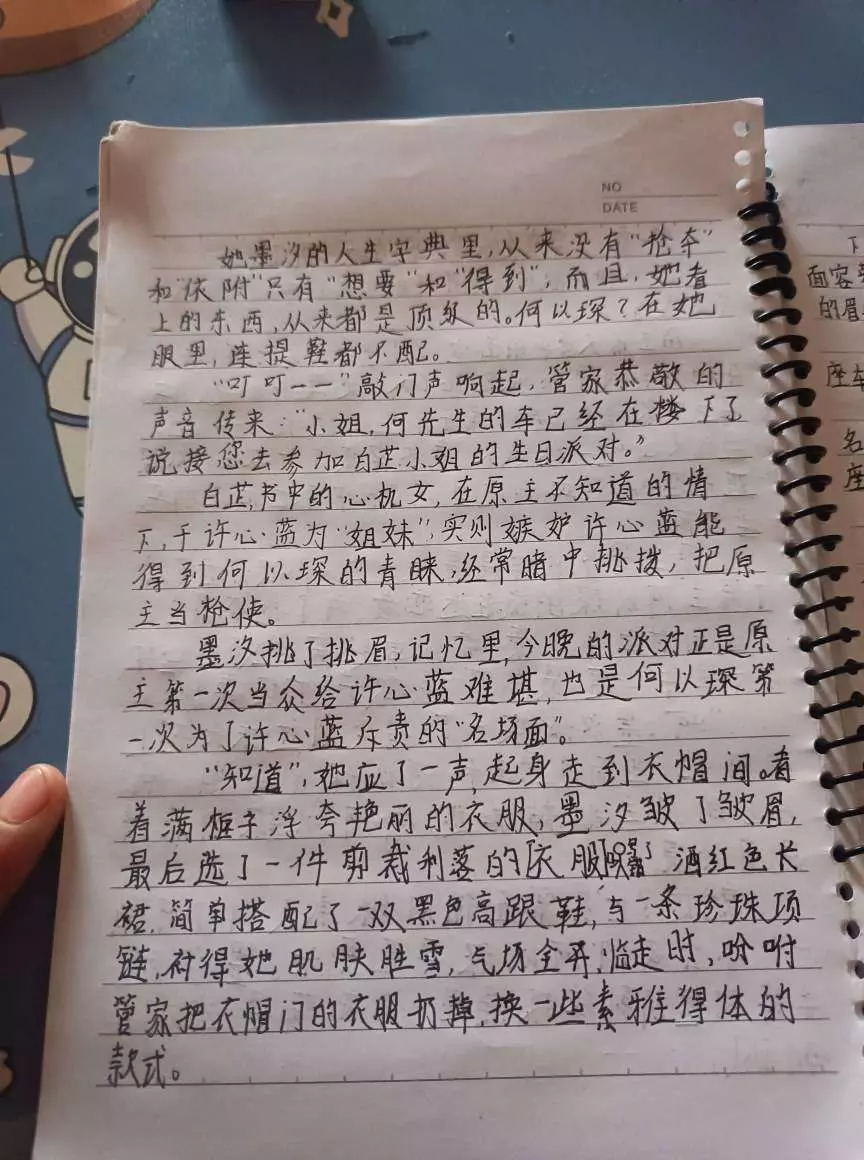 NO
DATE
她墨汐的人生字典里，从来没有“抢夺”
和“依附”只有“想要”和“得到”，而且，她看
上的东西，从来都是顶级的。何以琛？在她
眼里，连提鞋都不配。
“叮叮——”敲门声响起，管家恭敬的
声音传来：“小姐，何先生的车已经在楼下了
说接您去参加白芷小姐的生日派对。”
白芷，书中的心机女，在原主不知道的情
下，于许心蓝为“姐妹”，实则嫉妒许心蓝能
得到何以琛的青睐，经常暗中挑拨，把原
主当枪使。
墨汐挑了挑眉，记忆里，今晚的派对正是原
主第一次当众给许心蓝难堪，也是何以琛第
一次为了许心蓝斥责的“名场面”。
“知道”，她应了一声，起身走到衣帽间。看
着满柜子浮夸艳丽的衣服，墨汐皱了皱眉，
最后选了一件剪裁利落的衣服 酒红色长
裙，简单搭配了一双黑色高跟鞋，与一条珍珠项
链，衬得她肌肤胜雪，气场全开，临走时，吩咐
管家把衣帽门的衣服扔掉，换一些素雅得体的
款式。
下
面容
的眉
座车
名
座